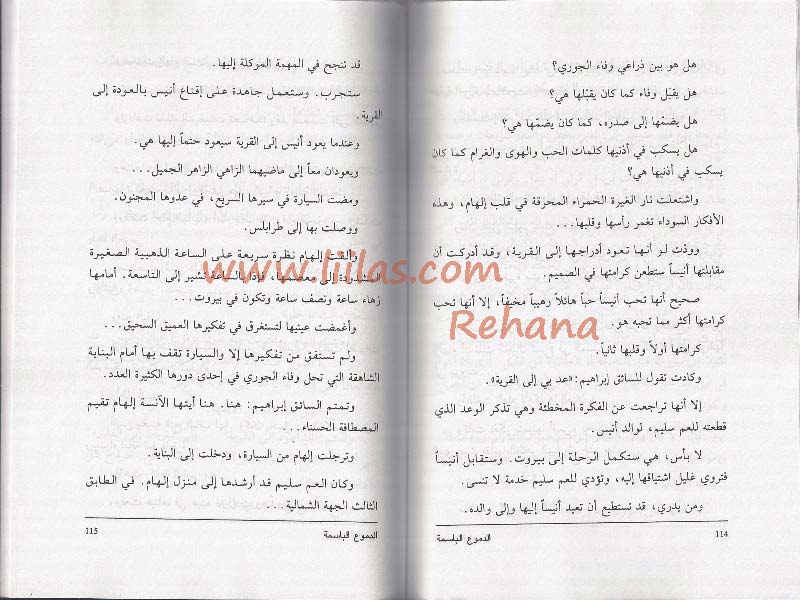 هل هو بين ذراعي وفاء الجوري؟
هل يقبّل وفاء كما كان يقبّلها هي؟
هل يضمّها إلى صدره، كما كان يضمّها هي؟
هل يسكب في أذنيها كلمات الحب والهوى والغرام كما كان
يسكب في أذنيها هي؟
واشتعلت نار الغيرة الحمراء المحرقة في قلب إلهام، وهذه
الأفكار السوداء تغمر رأسها وقلبها...
وودّت لو أنها تعود أدراجها إلى القرية، وقد أدركت أن
مقابلتها أنيساً ستطعن كرامتها في الصميم.
صحيح أنها تحب أنيساً حباً هائلاً رهيباً مخيفاً، إلا أنها تحب
كرامتها أكثر مما تحبه هو.
كرامتها أولاً وقلبها ثانياً.
وكادت تقول للسائق إبراهيم: «عد بي إلى القرية».
إلا أنها تراجعت عن الفكرة المخطئة وهي تذكر الوعد الذي
قطعته للعم سليم، لوالد أنيس.
لا بأس، هي ستكمل الرحلة إلى بيروت. وستقابل أنيساً
فتروي غليل اشتياقها إليه، وتؤدي للعم سليم خدمة لا تنسى.
ومن يدري، قد تستطيع أن تعيد أنيساً إليها وإلى والده.
114
الدموع الباسمة
قد تنجح في المهمة الموكلة إليها.
ستجرب. وستعمل جاهدة على إقناع أنيس بالعودة إلى
القرية.
وعندما يعود أنيس إلى القرية سيعود حتماً إليها هي.
ويعودان معاً إلى ماضيهما الزاهي الزاهر الجميل...
ومضت السيارة في سيرها السريع، في عدوها المجنون.
ووصلت بها إلى طرابلس.
وألقت إلهام نظرة سريعة على الساعة الذهبية الصغيرة
المشدودة إلى معصمها، فإذا بالساعة تشير إلى التاسعة. أمامها
زهاء ساعة ونصف ساعة وتكون في بيروت...
وأغمضت عينيها لتستغرق في تفكيرها العميق السحيق...
ولم تستفق من تفكيرها إلا والسيارة تقف بها أمام البناية
الشاهقة التي تحل وفاء الجوري في إحدى دورها الكثيرة العدد.
وتمتم السائق إبراهيم: هنا. هنا أيتها الآنسة إلهام تقيم
المصطافة الحسناء...
وترجلت إلهام من السيارة، ودخلت إلى البناية.
وكان العم سليم قد أرشدها إلى منزل إلهام. في الطابق
الثالث الجهة الشمالية...
115
الدموع الباسمة
www.liilas.com
Rehana